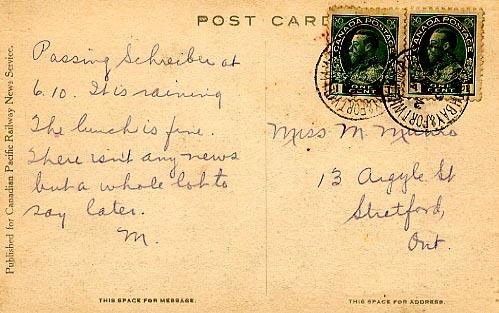 POST CARD
CANADA POSTAGE
1 ONE CENT 1
CANADA POSTAGE
1 ONE CENT 1
Published for Canadian Pacific Railway News Service.
Passing Schreiber at
6.10. It is raining
The lunch is fine.
There isn't any news
but a whole lot to
say later.
M.
Miss M. Munro
13 Argyle St
Stratford,
Ont.
THIS SPACE FOR MESSAGE.
THIS SPACE FOR ADDRESS.